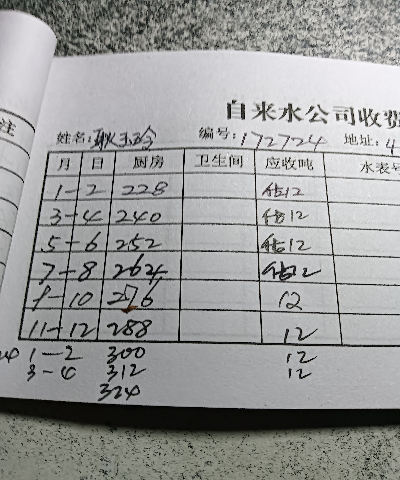 注
自来水公司收费
姓名:耿玉玲 编号:172724 地址:4
月 日 厨房 卫生间 应收吨 水表号
1-2 228 估12
3-4 240 估12
5-6 252 估12
7-8 264 估12
9-10 276 12
11-12 288 12
1-2 300 12
3-4 312 12
324